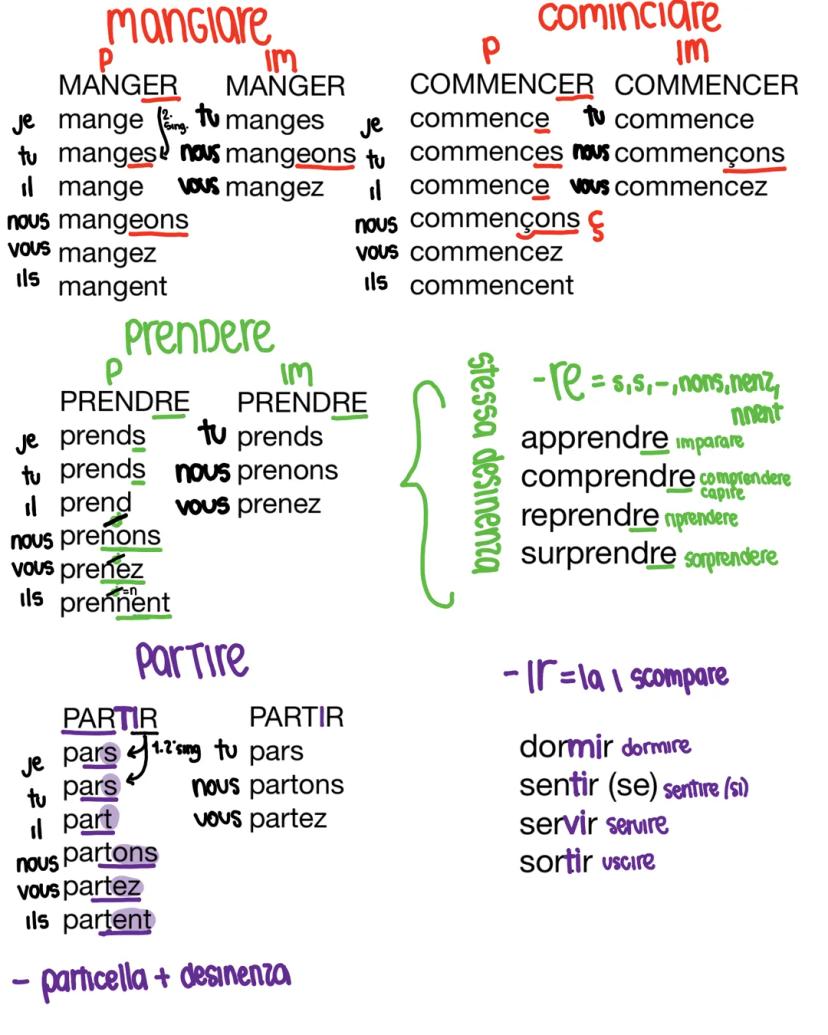 MANGIARE
P IM
MANGER MANGER
je mange 2ª sing. tu manges
tu manges nous mangeons
il mange vous mangez
nous mangeons
vous mangez
ils mangent
COMINCIARE
P IM
COMMENCER COMMENCER
je commence tu commence
tu commences nous commençons
il commence vous commencez
nous commençons ç
vous commencez
ils commencent
PRENDERE
P IM
PRENDRE PRENDRE
je prends tu prends
tu prends nous prenons
il prend vous prenez
nous prenons
vous prenez
=n
ils prennent
stessa desinenza
-re = s,s,-,nons,nenz,
nnent
apprendre imparare
comprendre comprendere
capire
reprendre riprendere
surprendre sorprendere
PARTIRE
PARTIR PARTIR
je pars 1.2ª sing tu pars
tu pars nous partons
il part vous partez
nous partons
vous partez
ils partent
- particella + desinenza
-IR = la i scompare
dormir dormire
sentir (se) sentire (si)
servir servire
sortir uscire